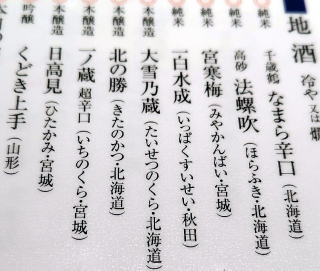 地酒 冷や又は燗
純米 千歳鶴 なまら辛口(北海道)
純米 高砂 法螺吹(ほらふき・北海道)
純米 宮寒梅(みやかんばい・宮城)
純米 一白水成(いっぱくすいせい・秋田)
本醸造 大雪乃蔵(たいせつのくら・北海道)
本醸造 北の勝(きたのかつ・北海道)
本醸造 一ノ蔵 超辛口(いちのくら・宮城)
本醸造 日高見(ひたかみ・宮城)
吟醸 くどき上手(山形)